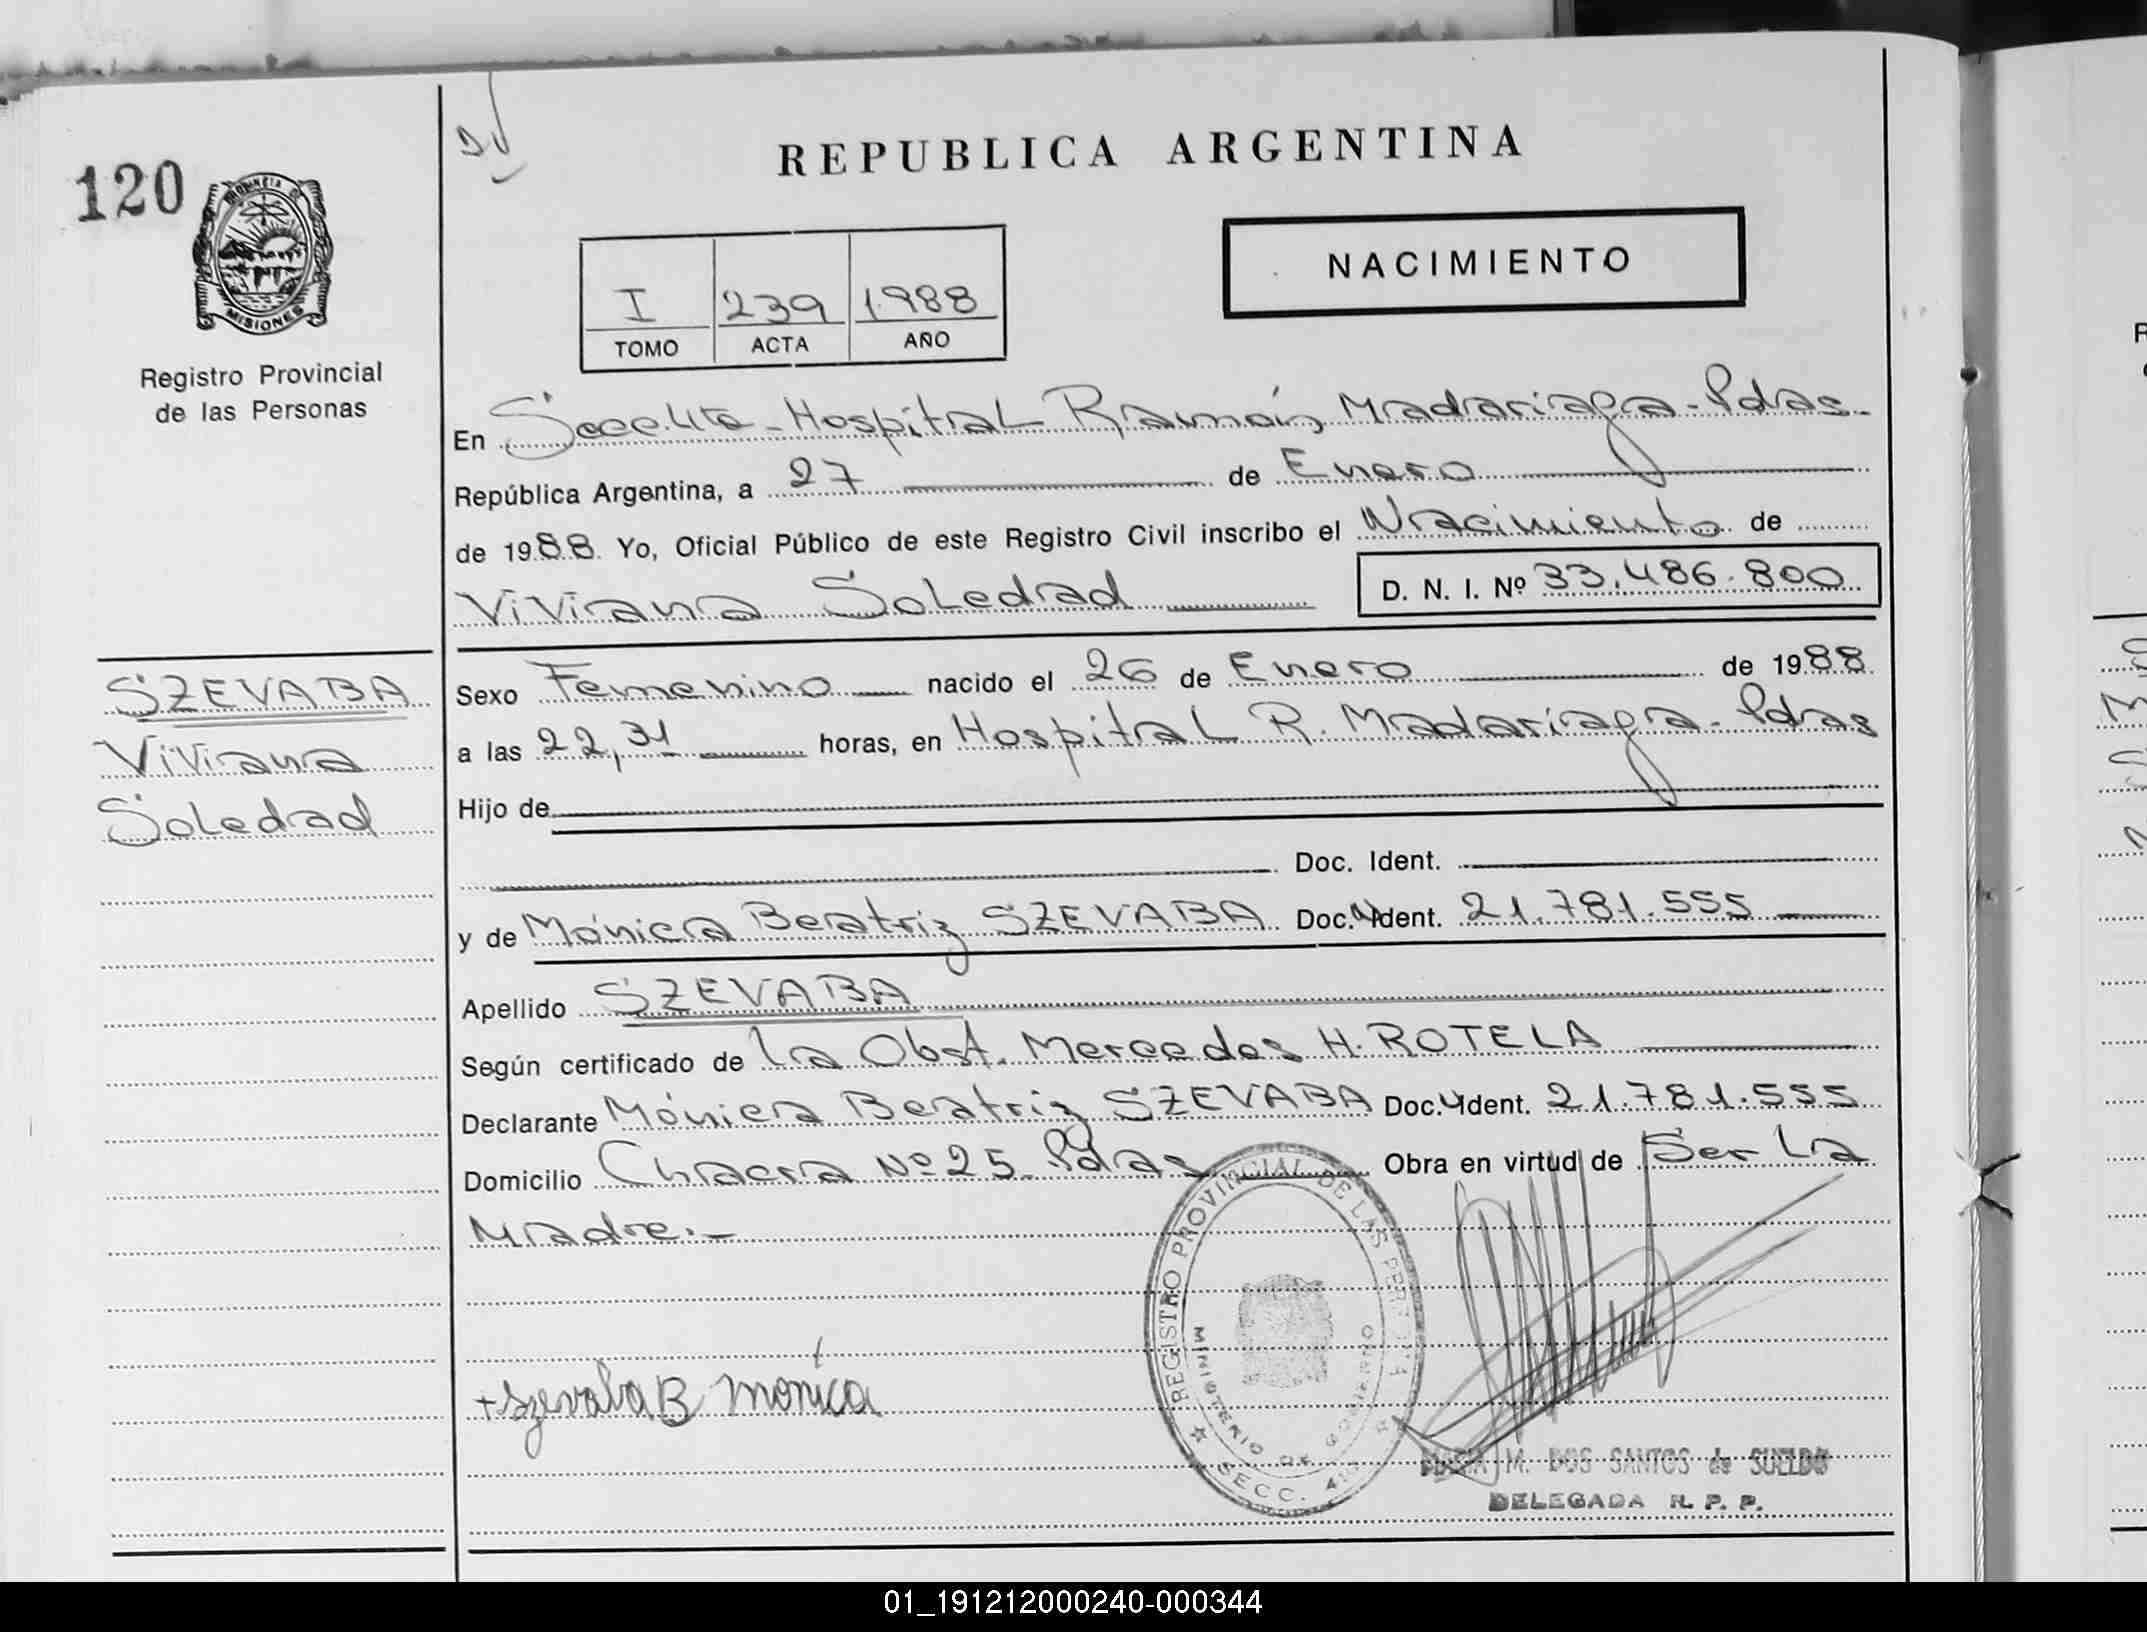 120
PROVINCIA DE
MISIONES
Registro Provincial
de las Personas
REPUBLICA ARGENTINA
NACIMIENTO
I 239 1988
TOMO ACTA AÑO
En Hospital Ramón Madariaga - Pdas.
República Argentina, a 27 de Enero
de 1988 Yo, Oficial Público de este Registro Civil inscribo el Nacimiento de
Viviana Soledad D. N. I. Nº 33.486.800
SZEVABA
Viviana
Soledad
Sexo Femenino nacido el 26 de Enero de 1988
a las 22,31 horas, en Hospital R. Madariaga - Pdas
Hijo de
Doc. Ident.
y de Mónica Beatriz SZEVABA Doc. Ident. 21.781.555
Apellido SZEVABA
Según certificado de la Obst. Mercedes H. ROTELA
Declarante Mónica Beatriz SZEVABA Doc. Ident. 21.781.555
Domicilio Chacra Nº 25 Pdas Obra en virtud de Ser la
Madre.-
+ Szevaba B Mónica
REGISTRO PROVINCIAL DE LAS
MINISTERIO DE GOBIERNO
SECC.
M. DOS SANTOS de SUELDO
DELEGADA R. P. P.
01_191212000240-000344